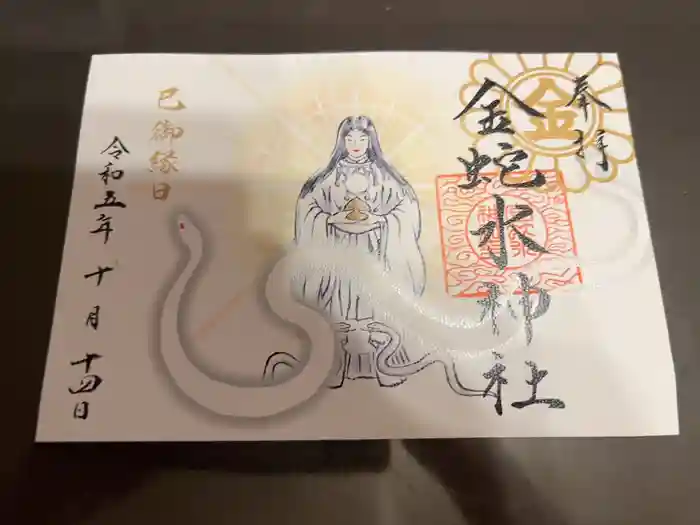 奉拝
金
金蛇水神社
巳御縁日
令和五年十月十四日